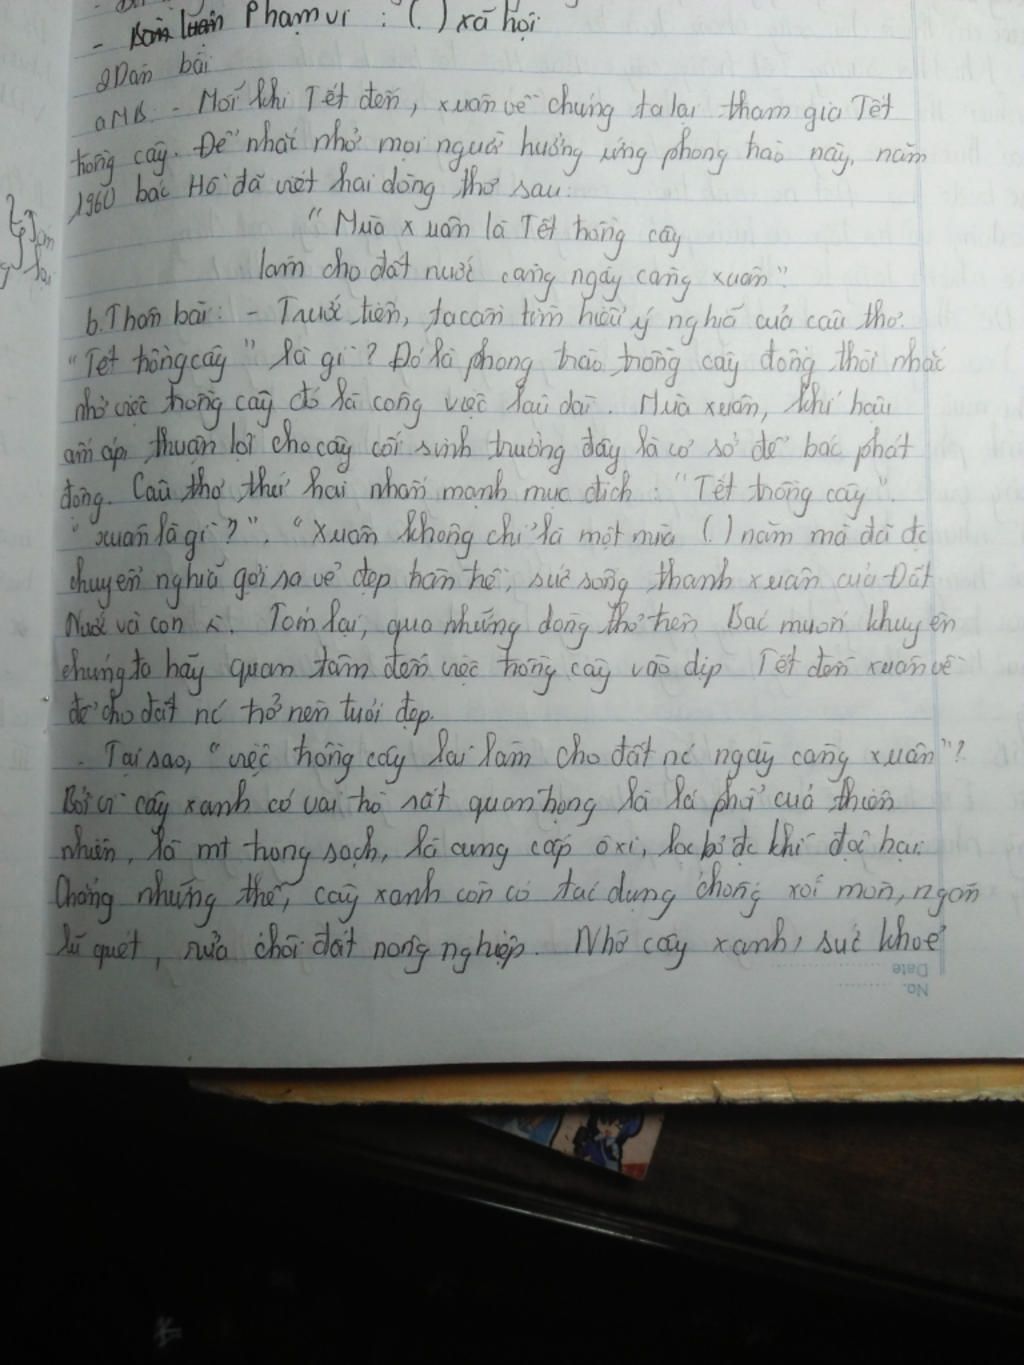 - Phạm vi : ( . ) xã hội
2 Dàn bài
a MB. - Mỗi khi Tết đến, xuân về chúng ta lại tham gia Tết
trồng cây. Để nhắc nhở mọi người hưởng ứng phong trào này, năm
1960 bác Hồ đã viết hai dòng thơ sau:
"Mùa xuân là Tết trồng cây
làm cho đất nước càng ngày càng xuân".
b. Thân bài: - Trước tiên, ta cần tìm hiểu ý nghĩa của câu thơ.
"Tết trồng cây" là gì? Đó là phong trào trồng cây đồng thời nhắc
nhở việc trồng cây đó là công việc lâu dài. Mùa xuân, khí hậu
ấm áp, thuận lợi cho cây cối sinh trưởng đây là cơ sở để bác phát
động. Câu thơ thứ hai nhấn mạnh mục đích: "Tết trồng cây".
"xuân là gì?". "Xuân không chỉ là một mùa ( . ) năm mà đã đc
chuyển nghĩa gợi ra vẻ đẹp hần hề, sức sống thanh xuân của Đất
Nước và con . Tóm lại, qua những dòng thơ trên Bác muốn khuyên
chúng ta hãy quan tâm đến việc trồng cây vào dịp Tết đến xuân về
để cho đất nc trở nên tươi đẹp.
- Tại sao, "việc trồng cây lại làm cho đất nc ngày càng xuân"?
Bởi vì cây xanh có vai trò rất quan trọng là lá phổi của thiên
nhiên, là mt trong sạch, là cung cấp ôxi, lọc bỏ đc khí độc hại.
Chẳng những thế, cây xanh còn có tác dụng chống xói mòn, ngăn
lũ quét, rửa trôi đất nông nghiệp. Nhờ cây xanh, sức khoẻ
No.
Date